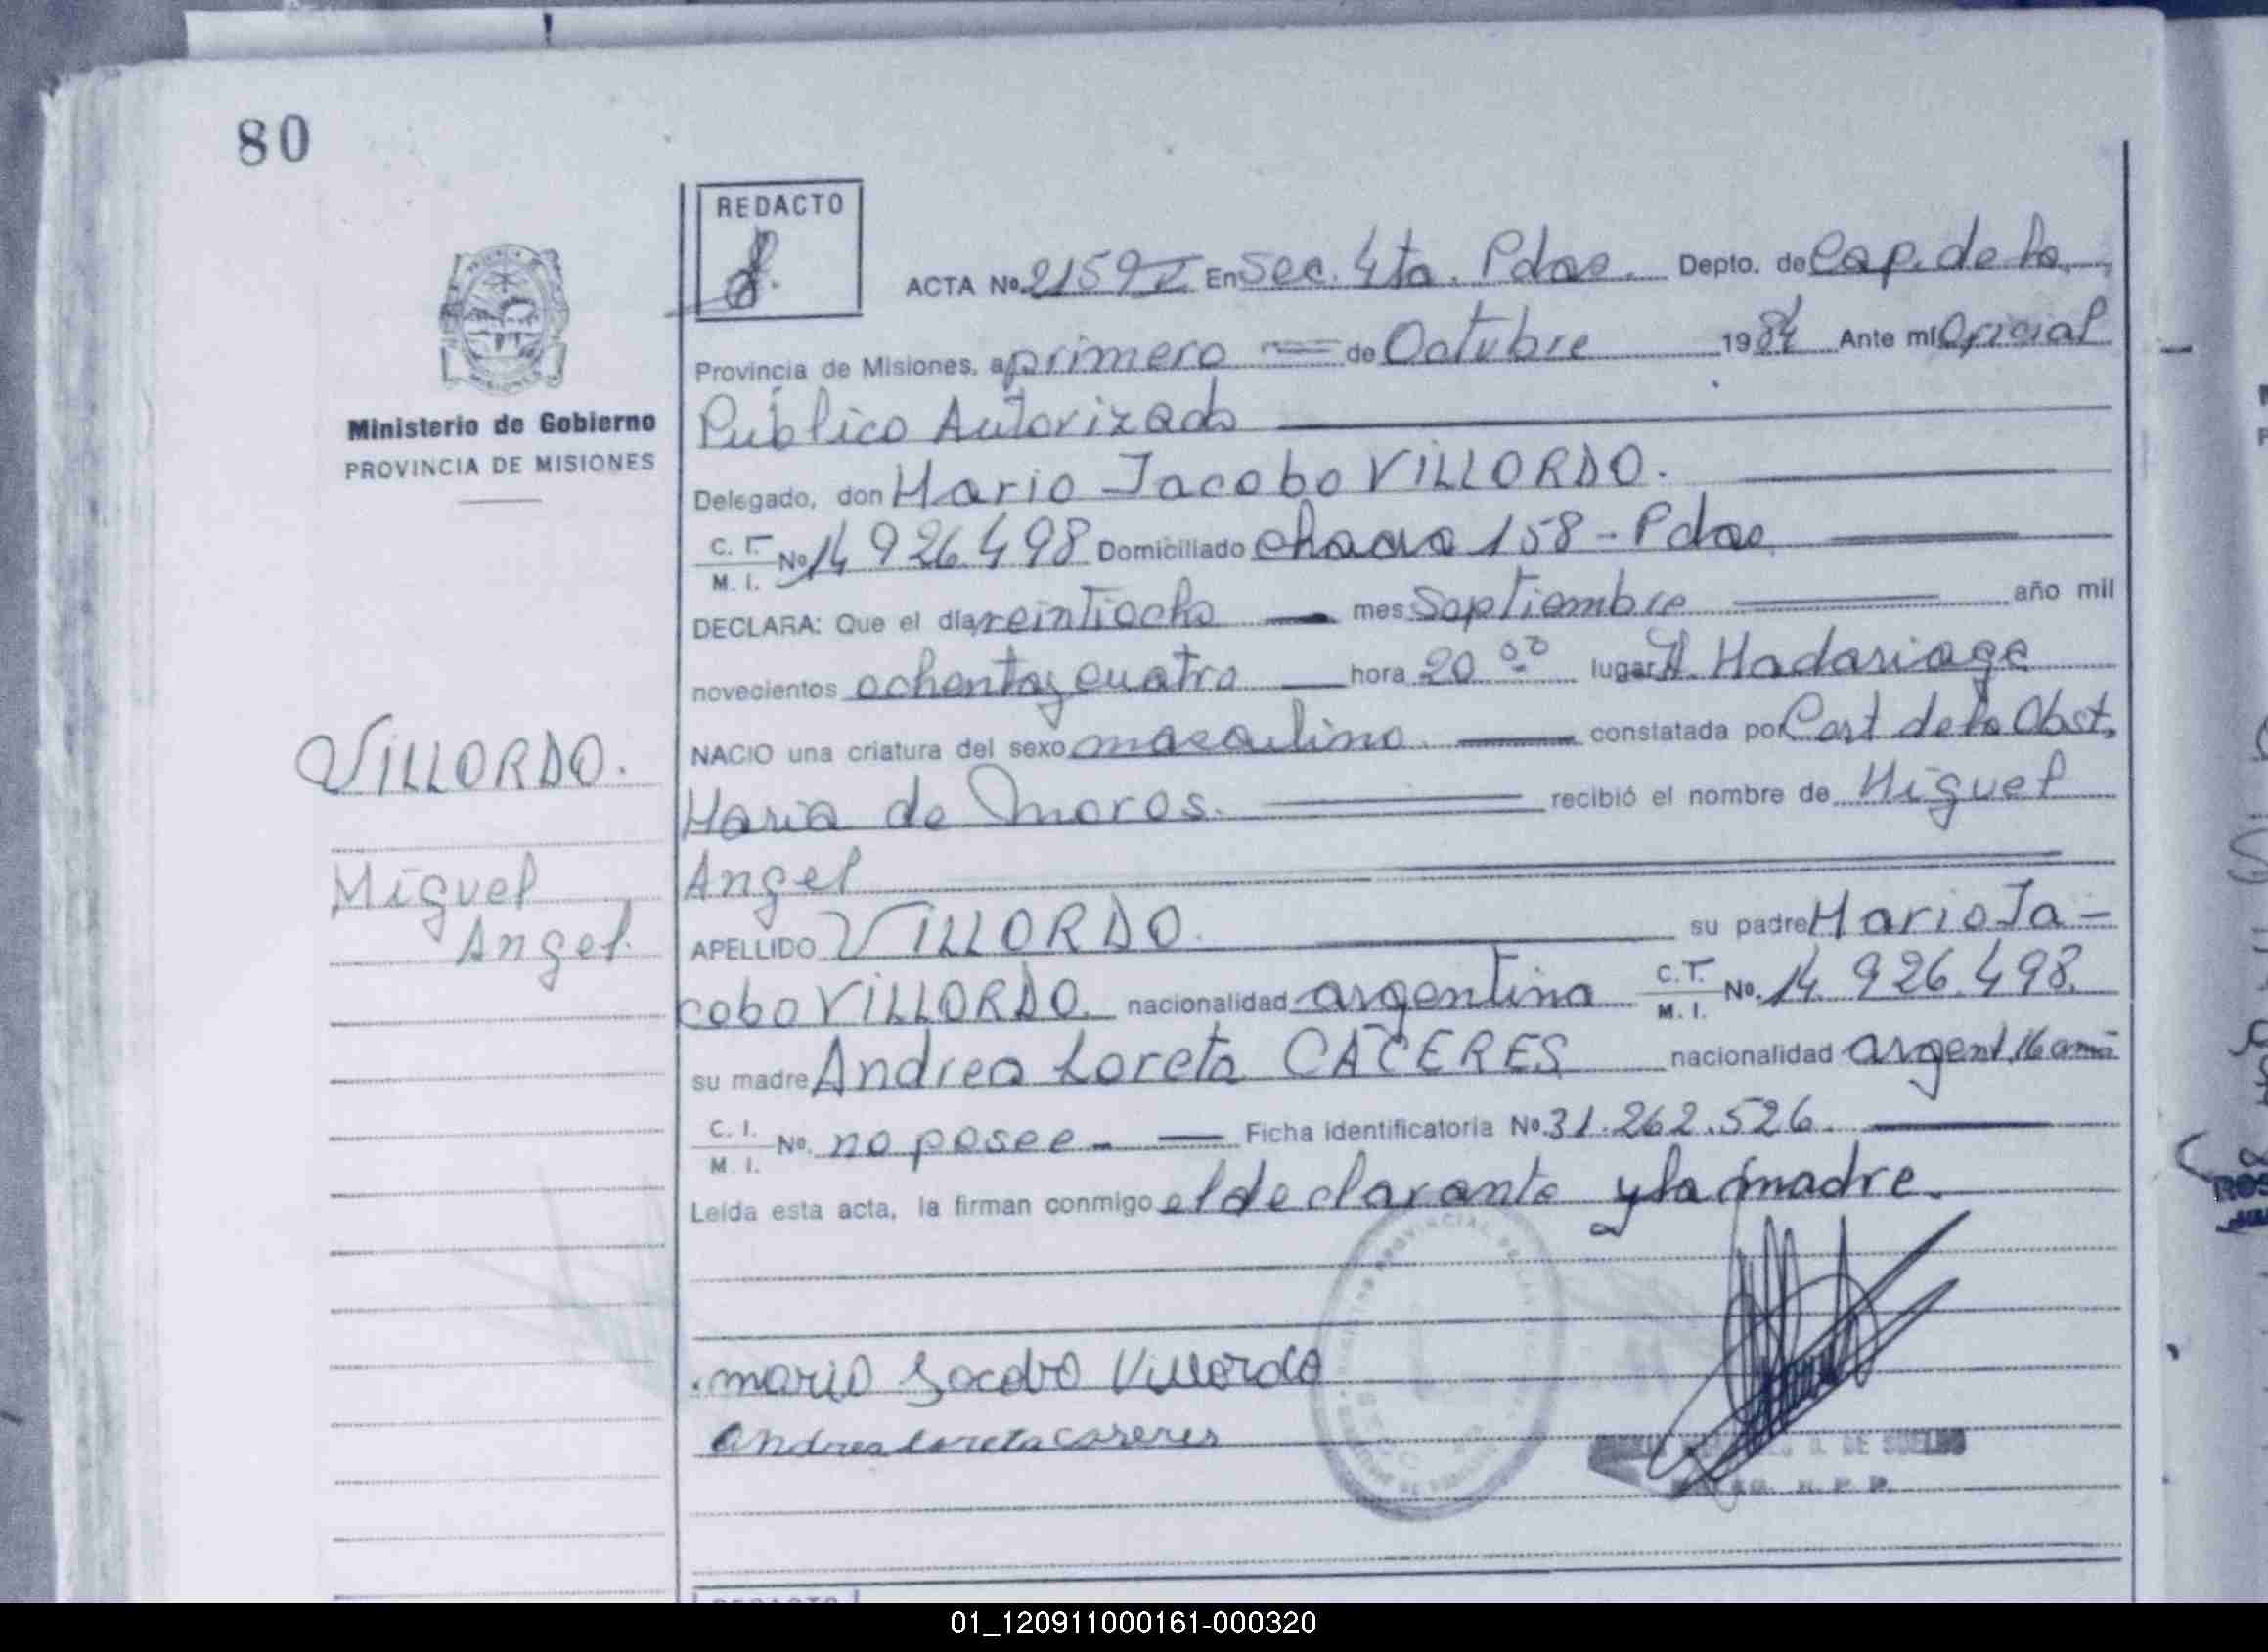 80
REDACTO
ACTA Nº 2159 I En Sec. 4ta. Pdas. Depto. de Cap. de la
Provincia de Misiones, a primero de Octubre 1984 Ante mí Oficial
Público Autorizado
Ministerio de Gobierno
PROVINCIA DE MISIONES
Delegado, don Mario Jacobo VILLORDO.
C. I. M. I. Nº 14.926.498 Domiciliado chacra 158 - Pdas
DECLARA: Que el día veintiocho mes Septiembre año mil
novecientos ochenta y cuatro hora 20 00 lugar H. Madariaga
NACIO una criatura del sexo masculino. constatada por Cert de la Obst.
VILLORDO.
Maria de Moros. recibió el nombre de Miguel
Miguel
Angel
Angel.
APELLIDO VILLORDO. su padre Mario Ja-
cobo VILLORDO. nacionalidad argentina C. I. M. I. Nº. 14.926.498.
su madre Andrea Loreta CACERES nacionalidad argent, 16 años
C. I. M. I. Nº. no posee - Ficha Identificatoria Nº 31.262.526.
Leída esta acta, la firman conmigo el declarante y la madre.
mario Jacobo Villordo
andrea loreta caseres
DE SUELDO
01_120911000161-000320